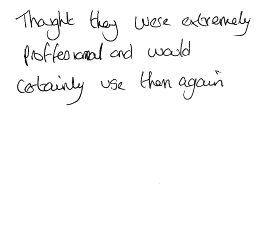 Thought they were extremely
proffessional and would
certainly use them again